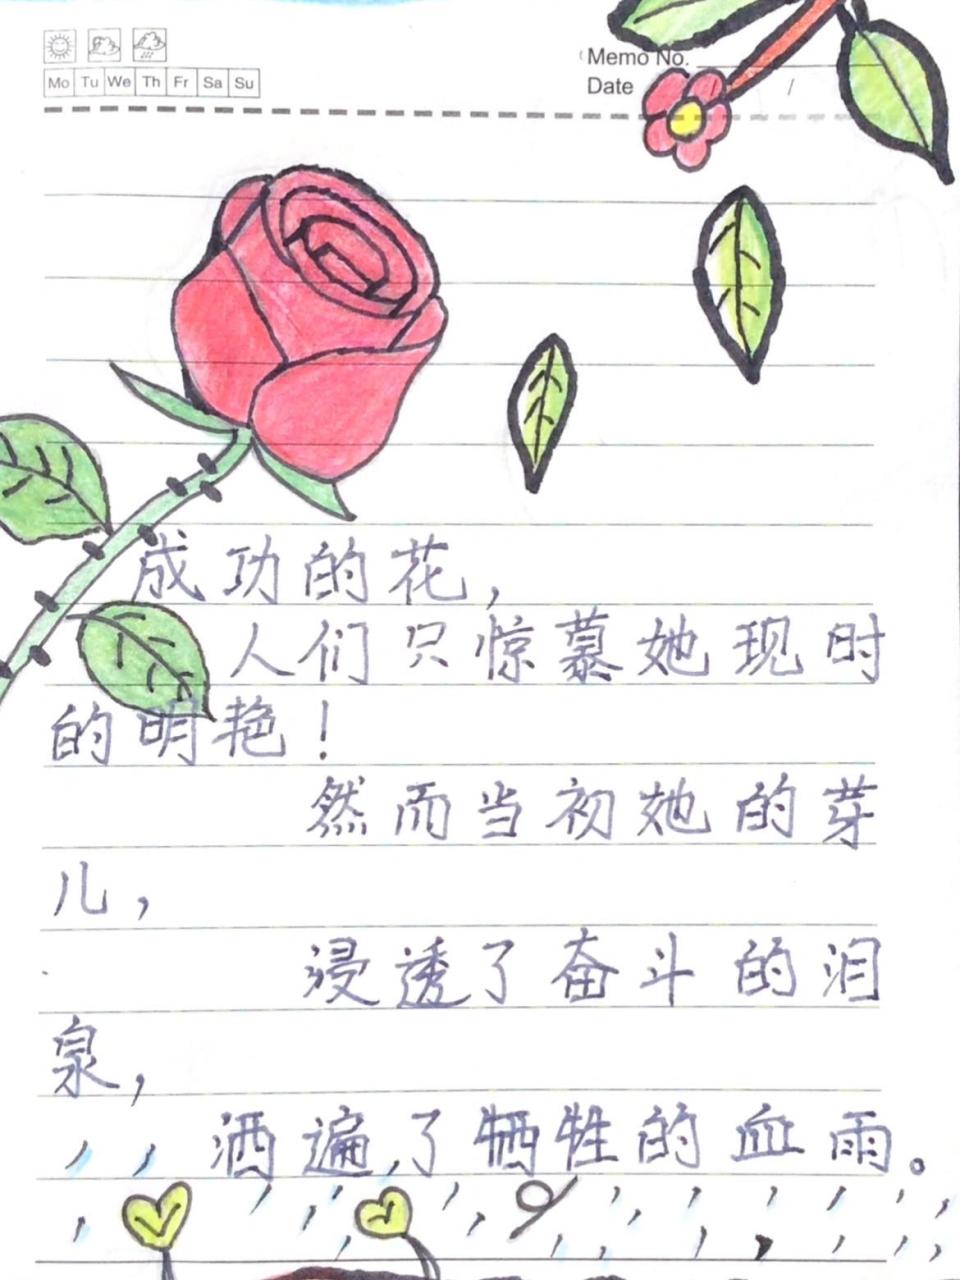 Memo No.
Mo Tu We Th Fr Sa Su
Date / /
成功的花，
人们只惊慕她现时
的明艳！
然而当初她的芽
儿，
浸透了奋斗的泪
泉，
洒遍了牺牲的血雨。